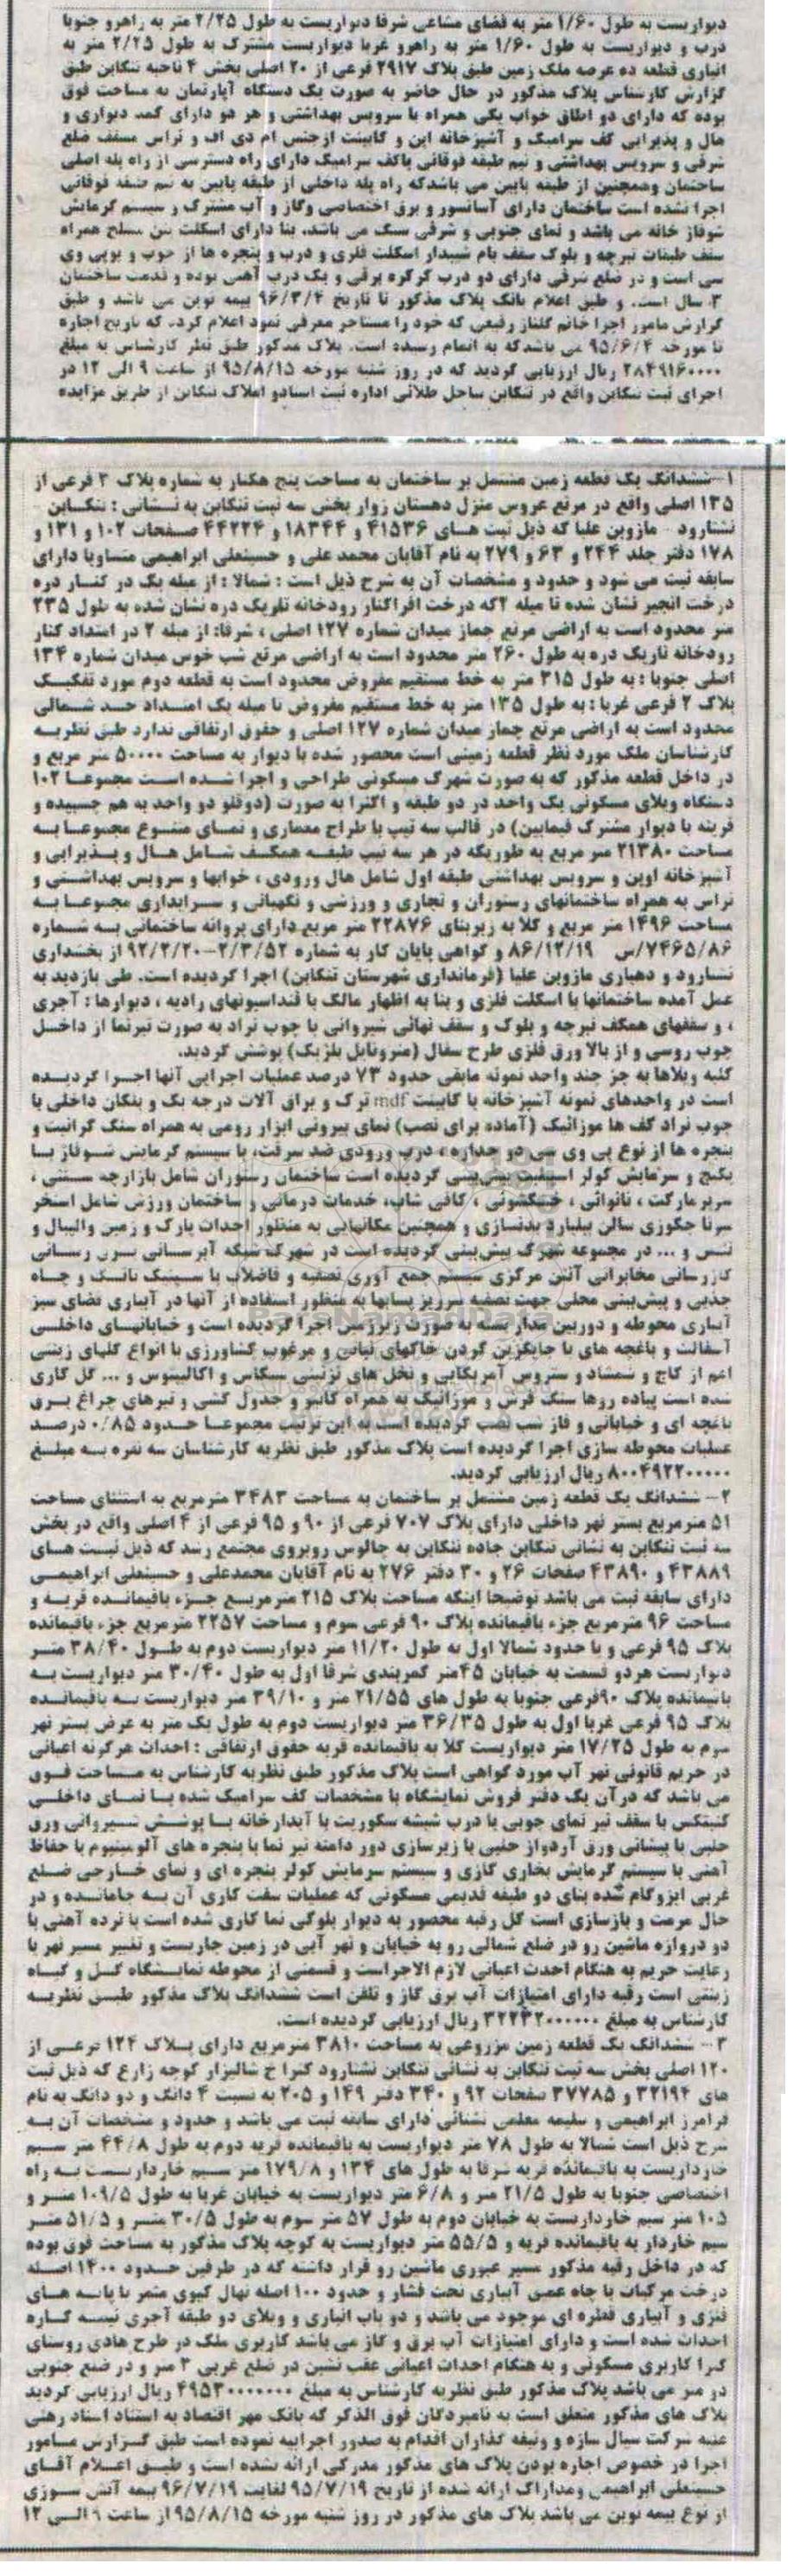 دیواریست به طول ۱/۶۰ متر به فضای مشاعی شرقا دیواریست به طول ۲/۲۵ متر به راهرو جنوبا
درب و دیواریست به طول ۱/۶۰ متر به راهرو غربا دیواریست مشترک به طول ۲/۲۵ متر به
انباری قطعه ده عرصه ملک زمین طبق پلاک ۲۹۱۷ فرعی از ۲۰ اصلی بخش ۴ ناحیه تنکابن طبق
گزارش کارشناس پلاک مذکور در حال حاضر به صورت یک دستگاه آپارتمان به مساحت فوق
بوده که دارای دو اطاق خواب یکی همراه با سرویس بهداشتی و هر دو دارای کمد دیواری و
هال و پذیرایی کف سرامیک و آشپزخانه اپن و کابینت ازجنس ام دی اف و تراس مسقف ضلع
شرقی و سرویس بهداشتی و نیم طبقه فوقانی باکف سرامیک دارای راه دسترسی از راه پله اصلی
ساختمان وهمچنین از طبقه پایین می باشدکه راه پله داخلی از طبقه پایین به نیم طبقه فوقانی
اجرا نشده است ساختمان دارای آسانسور و برق اختصاصی وگاز و آب مشترک و سیستم گرمایش
شوفاژ خانه می باشد و نمای جنوبی و شرقی سنگ می باشد. بنا دارای اسکلت بتن مسلح همراه
سقف طبقات تیرچه و بلوک سقف بام شیبدار اسکلت فلزی و درب و پنجره ها از چوب و یوپی وی
سی است و در ضلع شرقی دارای دو درب کرکره برقی و یک درب آهنی بوده و قدمت ساختمان
۳ سال است. و طبق اعلام بانک پلاک مذکور تا تاریخ ۹۶/۳/۴ بیمه نوین می باشد و طبق
گزارش مامور اجرا خانم گلناز رفیعی که خود را مستاجر معرفی نمود اعلام کرد. که تاریخ اجاره
تا مورخه ۹۵/۶/۴ می باشدکه به اتمام رسیده است. پلاک مذکور طبق نظر کارشناس به مبلغ
۲۸۴۹۱۶۰۰۰۰ ریال ارزیابی گردید که در روز شنبه مورخه ۹۵/۸/۱۵ از ساعت ۹ الی ۱۲ در
اجرای ثبت تنکابن واقع در تنکابن ساحل طلائی اداره ثبت اسنادو املاک تنکابن از طریق مزایده
۱- ششدانگ یک قطعه زمین مشتمل بر ساختمان به مساحت پنج هکتار به شماره پلاک ۲ فرعی از
۱۳۵ اصلی واقع در مرتع عروس منزل دهستان زوار بخش سه ثبت تنکابن به نشانی : تنکابن
نشتارود – مازوبن علیا که ذیل ثبت های ۴۱۵۳۶ و ۱۸۳۴۴ و ۴۴۲۲۴ صفحات ۱۰۲ و ۱۳۱ و
۱۷۸ دفتر جلد ۲۴۴ و ۶۳ و ۲۷۹ به نام آقایان محمد علی و حسینعلی ابراهیمی متساویا دارای
سابقه ثبت می شود و حدود و مشخصات آن به شرح ذیل است : شمالا : از میله یک در کنار دره
درخت انجیر نشان شده تا میله ۲که درخت افراکنار رودخانه تاریک دره نشان شده به طول ۲۳۵
متر محدود است به اراضی مرتع چماز میدان شماره ۱۲۷ اصلی ، شرقا: از میله ۲ در امتداد کنار
رودخانه تاریک دره به طول ۲۶۰ متر محدود است به اراضی مرتع شب خوس میدان شماره ۱۳۴
اصلی جنوبا : به طول ۳۱۵ متر به خط مستقیم مفروض محدود است به قطعه دوم مورد تفکیک
پلاک ۲ فرعی غربا : به طول ۱۳۵ متر به خط مستقیم مفروض تا میله یک امتداد حد شمالی
محدود است به اراضی مرتع چماز میدان شماره ۱۲۷ اصلی و حقوق ارتفاقی ندارد طبق نظریه
کارشناسان ملک مورد نظر قطعه زمینی است محصور شده با دیوار به مساحت ۵۰۰۰۰ متر مربع و
در داخل قطعه مذکور که به صورت شهرک مسکونی طراحی و اجرا شده است مجموعا ۱۰۲
دستگاه ویلای مسکونی یک واحد در دو طبقه و اکثرا به صورت (دوقلو دو واحد به هم چسبیده و
قرینه با دیوار مشترک فیمابین) در قالب سه تیپ با طراح معماری و نمای متنوع مجموعا به
مساحت ۲۱۳۸۰ متر مربع به طوریکه در هر سه تیپ طبقه همکف شامل هال و پذیرایی و
آشپزخانه اوپن و سرویس بهداشتی طبقه اول شامل هال ورودی ، خوابها و سرویس بهداشتی و
تراس به همراه ساختمانهای رستوران و تجاری و ورزشی و نگهبانی و سرایداری مجموعا به
مساحت ۱۴۹۶ متر مربع و کلا به زیربنای ۲۲۸۷۶ متر مربع دارای پروانه ساختمانی به شماره
۷۴۶۵/۸۶/س ۸۶/۱۲/۱۹ و گواهی پایان کار به شماره ۲/۳/۵۲-۹۲/۲/۲۰ از بخشداری
نشتارود و دهیاری مازوبن علیا (فرمانداری شهرستان تنکابن) اجرا گردیده است. طی بازدید به
عمل آمده ساختمانها با اسکلت فلزی و بنا به اظهار مالک با فنداسیونهای رادیه ، دیوارها : آجری
، و سقفهای همکف تیرچه و بلوک و سقف نهائی شیروانی با چوب نراد به صورت تیرنما از داخل
چوب روسی و از بالا ورق فلزی طرح سفال (متروتایل بلژیک) پوشش گردید.
کلیه ویلاها به جز چند واحد نمونه مابقی حدود ۷۳ درصد عملیات اجرایی آنها اجرا گردیده
است در واحدهای نمونه آشپزخانه با کابینت mdf ترک و یراق آلات درجه یک و پلکان داخلی با
چوب نراد کف ها موزائیک (آماده برای نصب) نمای بیرونی ابزار رومی به همراه سنگ گرانیت و
پنجره ها از نوع پی وی سی دو جداره ، درب ورودی ضد سرقت، با سیستم گرمایش شوفاژ با
پکیج و سرمایش کولر اسپیلت پیش‌بینی گردیده است ساختمان رستوران شامل بازارچه سنتی ،
سوپرمارکت ، نانوائی ، خشکشوئی ، کافی شاپ، خدمات درمانی و ساختمان ورزش شامل استخر
سونا جکوزی سالن بیلیارد بدنسازی و همچنین مکانهایی به منظور احداث پارک و زمین والیبال و
تنیس و ... در مجموعه شهرک پیش‌بینی گردیده است در شهرک شبکه آبرسانی برق رسانی
گازرسانی مخابراتی آنتن مرکزی سیستم جمع آوری تصفیه و فاضلاب با سپتیک تانک و چاه
جذبی و پیش‌بینی محلی جهت تصفیه سرریز پسابها به منظور استفاده از آنها در آبیاری فضای سبز
آبیاری محوطه و دوربین مداربسته به صورت زیرزمین اجرا گردیده است و خیابانهای داخلی
آسفالت و باغچه های با جایگزین کردن خاکهای نباتی و مرغوب کشاورزی با انواع گلهای زینتی
اعم از کاج و شمشاد و سروس آمریکایی و نخل های تزئینی سیکاس و اکالیپتوس و ... گل کاری
شده است پیاده روها سنگ فرش و موزائیک به همراه کانیو و جدول کشی و تیرهای چراغ برق
باغچه ای و خیابانی و فاز شب نصب گردیده است به این ترتیب مجموعا حدود ۰/۸۵ درصد
عملیات محوطه سازی اجرا گردیده است پلاک مذکور طبق نظریه کارشناسان سه نفره به مبلغ
۸۰۰۴۹۲۲۰۰۰۰۰ ریال ارزیابی گردید.
۲- ششدانگ یک قطعه زمین مشتمل بر ساختمان به مساحت ۳۴۸۳ مترمربع به استثنای مساحت
۵۱ مترمربع بستر نهر داخلی دارای پلاک ۷۰۷ فرعی از ۹۰ و ۹۵ فرعی از ۴ اصلی واقع در بخش
سه ثبت تنکابن به نشانی تنکابن جاده تنکابن به چالوس روبروی مجتمع رشد که ذیل ثبت های
۴۳۸۸۹ و ۴۳۸۹۰ صفحات ۲۶ و ۳۰ دفتر ۲۷۶ به نام آقایان محمدعلی و حسینعلی ابراهیمی
دارای سابقه ثبت می باشد توضیحا اینکه مساحت پلاک ۲۱۵ مترمربع جزء باقیمانده قریه و
مساحت ۹۶ مترمربع جزء باقیمانده پلاک ۹۰ فرعی سوم و مساحت ۲۲۵۷ مترمربع جزء باقیمانده
پلاک ۹۵ فرعی و با حدود شمالا اول به طول ۱۱/۲۰ متر دیواریست دوم به طول ۳۸/۴۰ متر
دیواریست هردو قسمت به خیابان ۴۵متر کمربندی شرقا اول به طول ۳۰/۴۰ متر دیواریست به
باقیمانده پلاک ۹۰فرعی جنوبا به طول های ۲۱/۵۵ متر و ۳۹/۱۰ متر دیواریست به باقیمانده
پلاک ۹۵ فرعی غربا اول به طول ۳۶/۳۵ متر دیواریست دوم به طول یک متر به عرض بستر نهر
سوم به طول ۱۷/۲۵ متر دیواریست کلا به باقیمانده قریه حقوق ارتفاقی : احداث هرگونه اعیانی
در حریم قانونی نهر آب مورد گواهی است پلاک مذکور طبق نظریه کارشناس به مساحت فوق
می باشد که درآن یک دفتر فروش نمایشگاه با مشخصات کف سرامیک شده با نمای داخلی
کنیتکس با سقف تیر نمای چوبی با درب شیشه سکوریت با آبدارخانه با پوشش شیروانی ورق
حلبی با پیشانی ورق آردواز حلبی با زیرسازی دور دامنه تیر نما با پنجره های آلومینیوم با حفاظ
آهنی با سیستم گرمایش بخاری گازی و سیستم سرمایش کولر پنجره ای و نمای خارجی ضلع
غربی ایزوگام شده بنای دو طبقه قدیمی مسکونی که عملیات سفت کاری آن به جامانده و در
حال مرمت و بازسازی است کل رقبه محصور به دیوار بلوکی نما کاری شده است با نرده آهنی با
دو دروازه ماشین رو در ضلع شمالی رو به خیابان و نهر آبی در زمین جاریست و تغییر مسیر نهر با
رعایت حریم به هنگام احدث اعیانی لازم الاجراست و قسمتی از محوطه نمایشگاه گل و گیاه
زینتی است رقبه دارای امتیازات آب برق گاز و تلفن است ششدانگ پلاک مذکور طبق نظریه
کارشناس به مبلغ ۳۲۲۳۲۰۰۰۰۰۰ ریال ارزیابی گردیده است.
۳- ششدانگ یک قطعه زمین مزروعی به مساحت ۳۸۱۰ مترمربع دارای پلاک ۱۲۴ فرعی از
۱۲۰ اصلی بخش سه ثبت تنکابن به نشانی تنکابن نشتارود کترا خ شالیزار کوچه زارع که ذیل ثبت
های ۳۲۱۹۴ و ۳۷۷۸۵ صفحات ۹۲ و ۳۴۰ دفتر ۱۴۹ و ۲۰۵ به نسبت ۴ دانگ و دو دانگ به نام
فرامرز ابراهیمی و سلیمه معلمی نشتائی دارای سابقه ثبت می باشد و حدود و مشخصات آن به
شرح ذیل است شمالا به طول ۷۸ متر دیواریست به باقیمانده قریه دوم به طول ۴۴/۸ متر سیم
خارداریست به باقیمانده قریه شرقا به طول های ۱۳۴ و ۱۷۹/۸ متر سیم خارداریست به راه
اختصاصی جنوبا به طول ۲۱/۵ متر و ۶/۸ متر دیواریست به خیابان غربا به طول ۱۰۹/۵ متر و
۱۰۵ متر سیم خارداریست به خیابان دوم به طول ۵۷ متر سوم به طول ۳۰/۵ متر و ۵۱/۵ متر
سیم خاردار به باقیمانده قریه و ۵۵/۵ متر دیواریست به کوچه پلاک مذکور به مساحت فوق بوده
که در داخل رقبه مذکور مسیر عبوری ماشین رو قرار داشته که در طرفین حدود ۱۴۰۰ اصله
درخت مرکبات با چاه عمق آبیاری تحت فشار و حدود ۱۰۰ اصله نهال کیوی مثمر با پایه های
فلزی و آبیاری قطره ای موجود می باشد و دو باب انباری و ویلای دو طبقه آجری نیمه کاره
احداث شده است و دارای امتیازات آب برق و گاز می باشد کاربری ملک در طرح هادی روستای
کترا کاربری مسکونی و به هنگام احداث اعیانی عقب نشین در ضلع غربی ۳ متر و در ضلع جنوبی
دو متر می باشد پلاک مذکور طبق نظریه کارشناس به مبلغ ۴۹۵۳۰۰۰۰۰۰۰ ریال ارزیابی گردید
پلاک های مذکور متعلق است به نامبردگان فوق الذکر که بانک مهر اقتصاد به استناد اسناد رهنی
علیه شرکت سیال سازه و وثیقه گذاران اقدام به صدور اجراییه نموده است طبق گزارش مامور
اجرا در خصوص اجاره بودن پلاک های مذکور مدرکی ارائه نشده است و طبق اعلام آقای
حسینعلی ابراهیمی ومدارک ارائه شده از تاریخ ۹۵/۷/۱۹ لغایت ۹۶/۷/۱۹ بیمه آتش سوزی
از نوع بیمه نوین می باشد پلاک های مذکور در روز شنبه مورخه ۹۵/۸/۱۵ از ساعت ۹ الی ۱۲